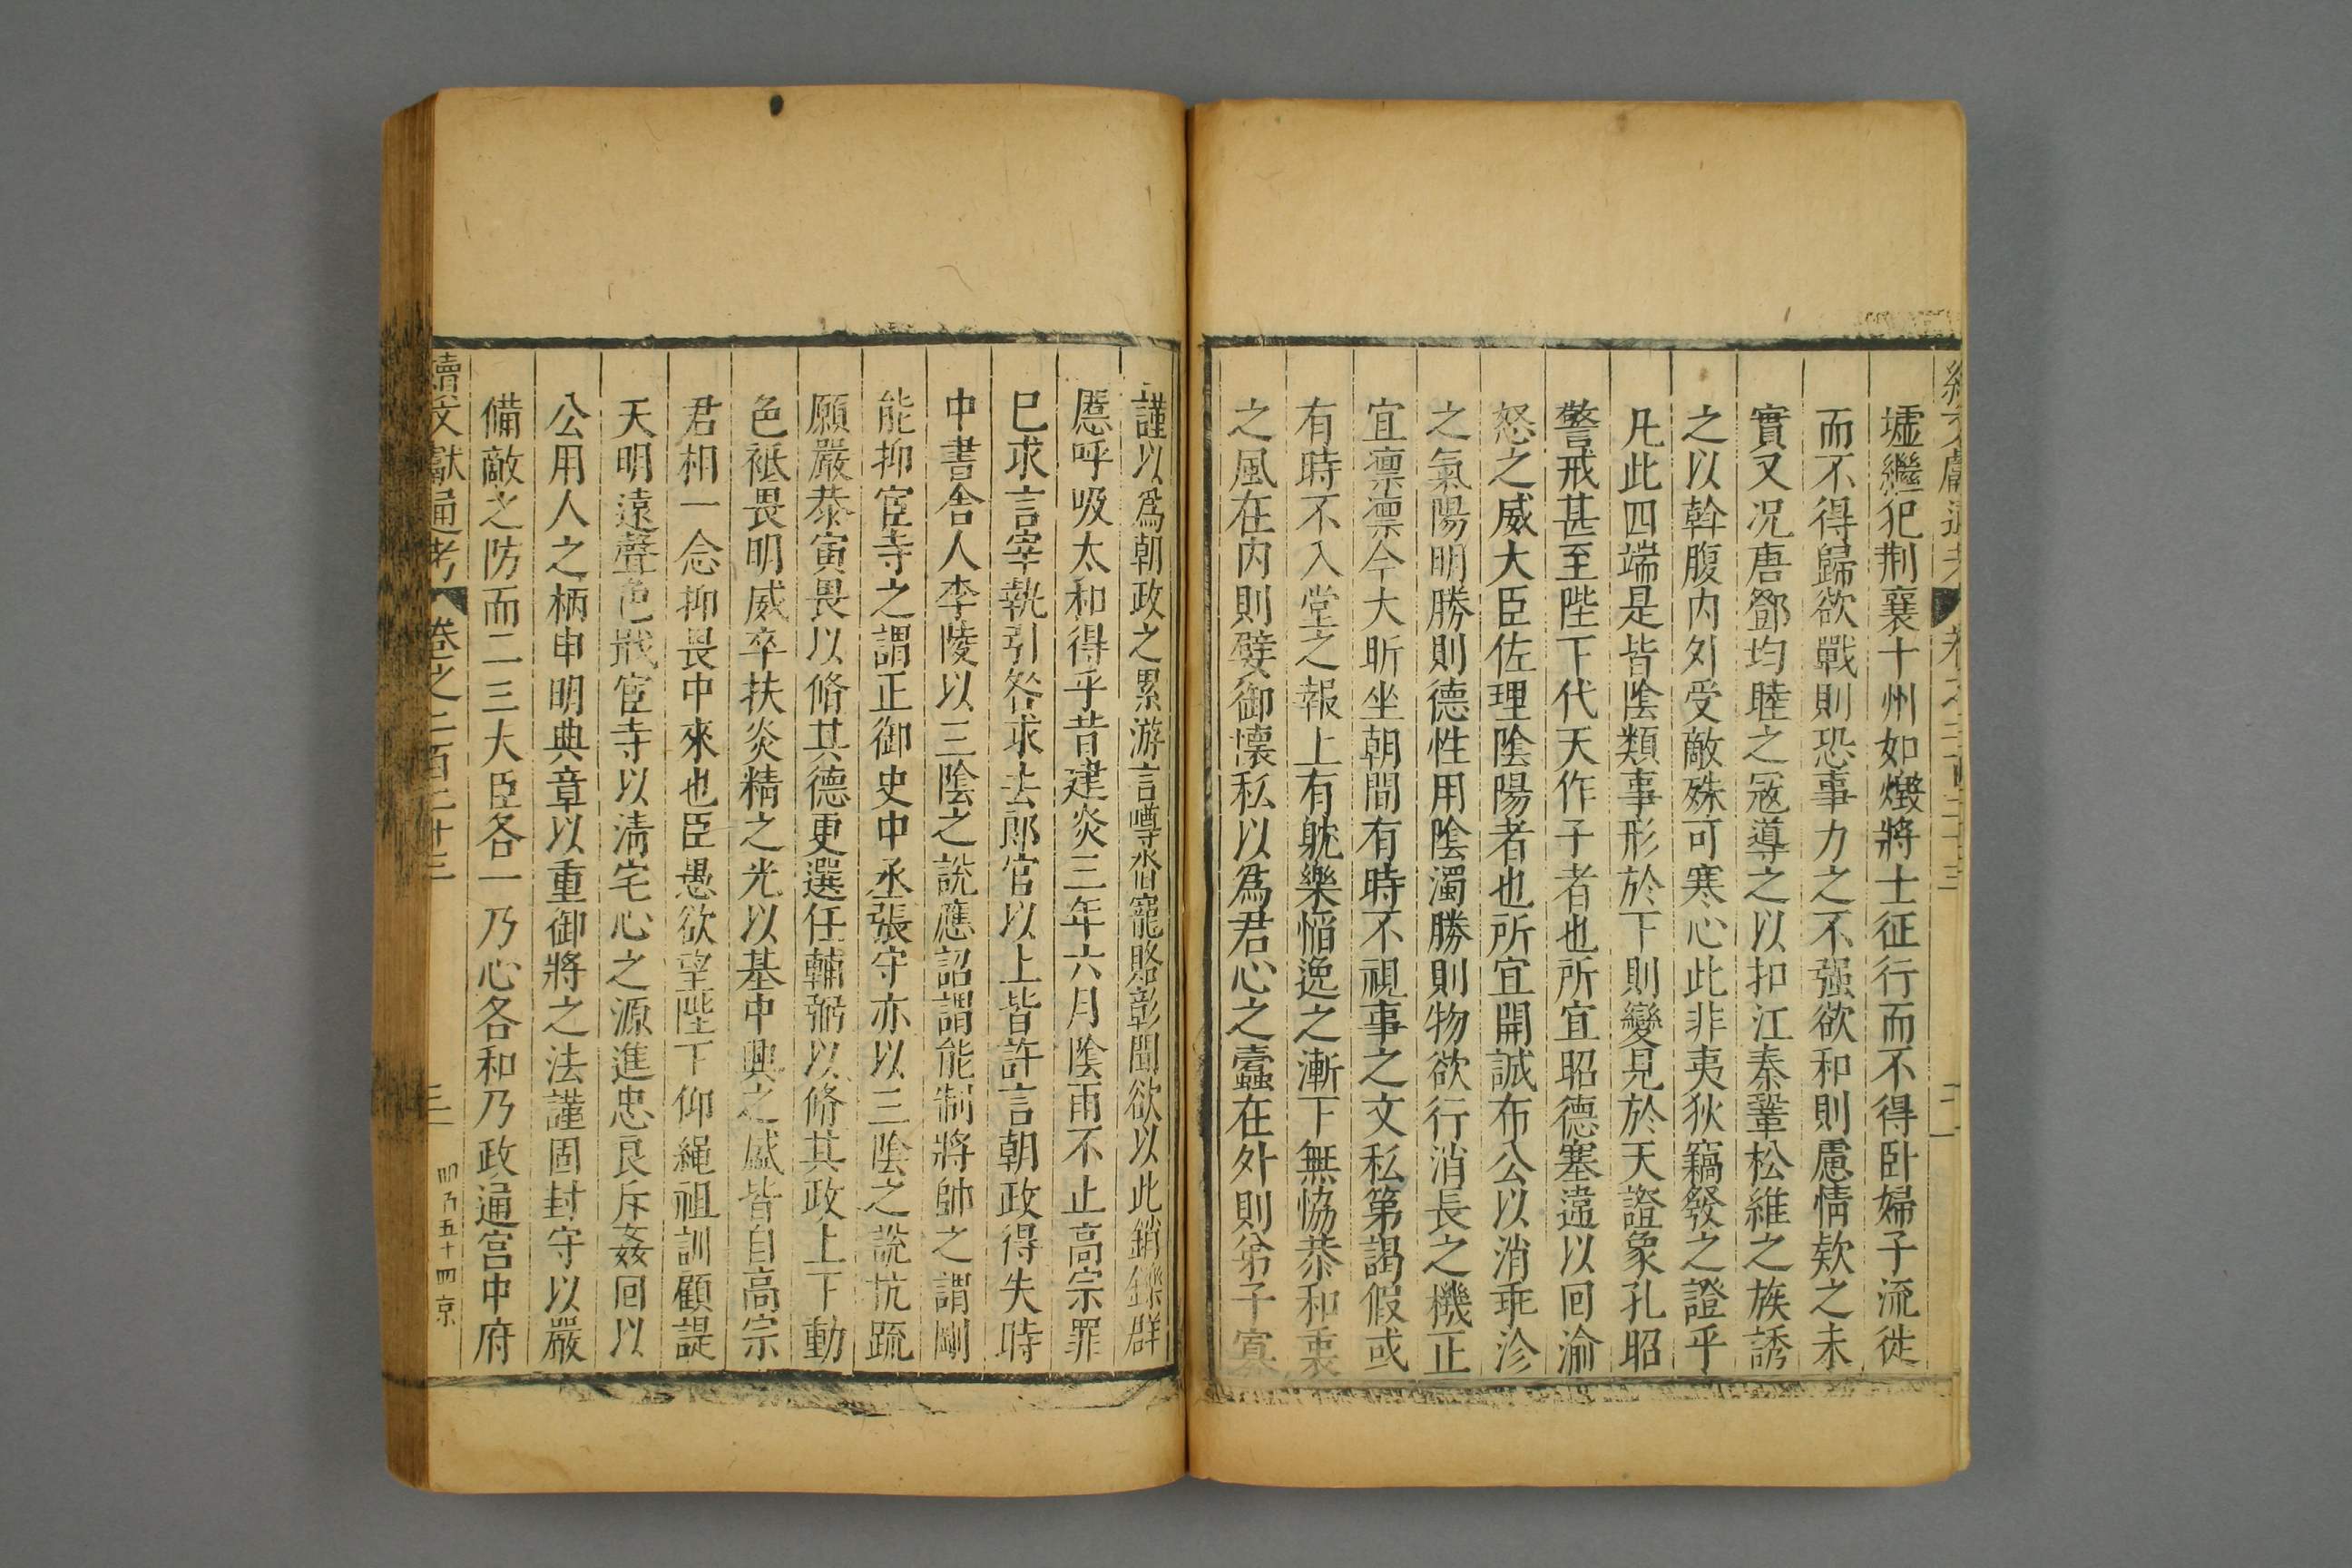 墟繼犯荆襄十州如燬將士征行而不得卧婦子流徙
而不得歸欲戰則恐事力之不强欲和則慮情欵之未
實又况唐鄧均睦之冦導之以扣江秦鞏松維之族誘
之以斡腹内外受敵殊可寒心此非夷狄竊發之證乎
凡此四端是皆陰類事形於下則變見於天證象孔昭
警戒甚至陛下代天作子者也所宜昭德塞違以回渝
怒之威大臣佐理陰陽者也所宜開誠布公以消乖沴
之氣陽明勝則德性用陰濁勝則物欲行消長之機正
宜禀禀今大昕坐朝間有時不視事之文私第謁假或
有時不入堂之報上有躭樂慆逸之漸下無恊恭和衷
之風在内則嬖御懷私以為君心之蠹在外則弟子寡
謹以爲朝政之累游言噂沓寵賂彰聞欲以此銷鑠群
慝呼吸太和得乎昔建炎三年六月陰雨不止高宗罪
巳求言宰執引咎求去郎官以上皆許言朝政得失時
中書舍人李陵以三陰之説應詔謂能制將帥之謂剛
能抑宦寺之謂正御史中丞張守亦以三陰之説抗疏
願嚴恭寅畏以脩其德更選任輔弼以脩其政上下動
色祗畏明威卒扶炎精之光以基中興之盛皆自高宗
君相一念抑畏中來也臣愚欲望陛下仰繩祖訓顧諟
天明遠聲色戢宦寺以淸宅心之源進忠良斥姦囘以
公用人之柄申明典章以重御將之法謹固封守以嚴
備敵之防而二三大臣各一乃心各和乃政通宫中府
續文獻通考 卷之二百二十三 三 五十四京